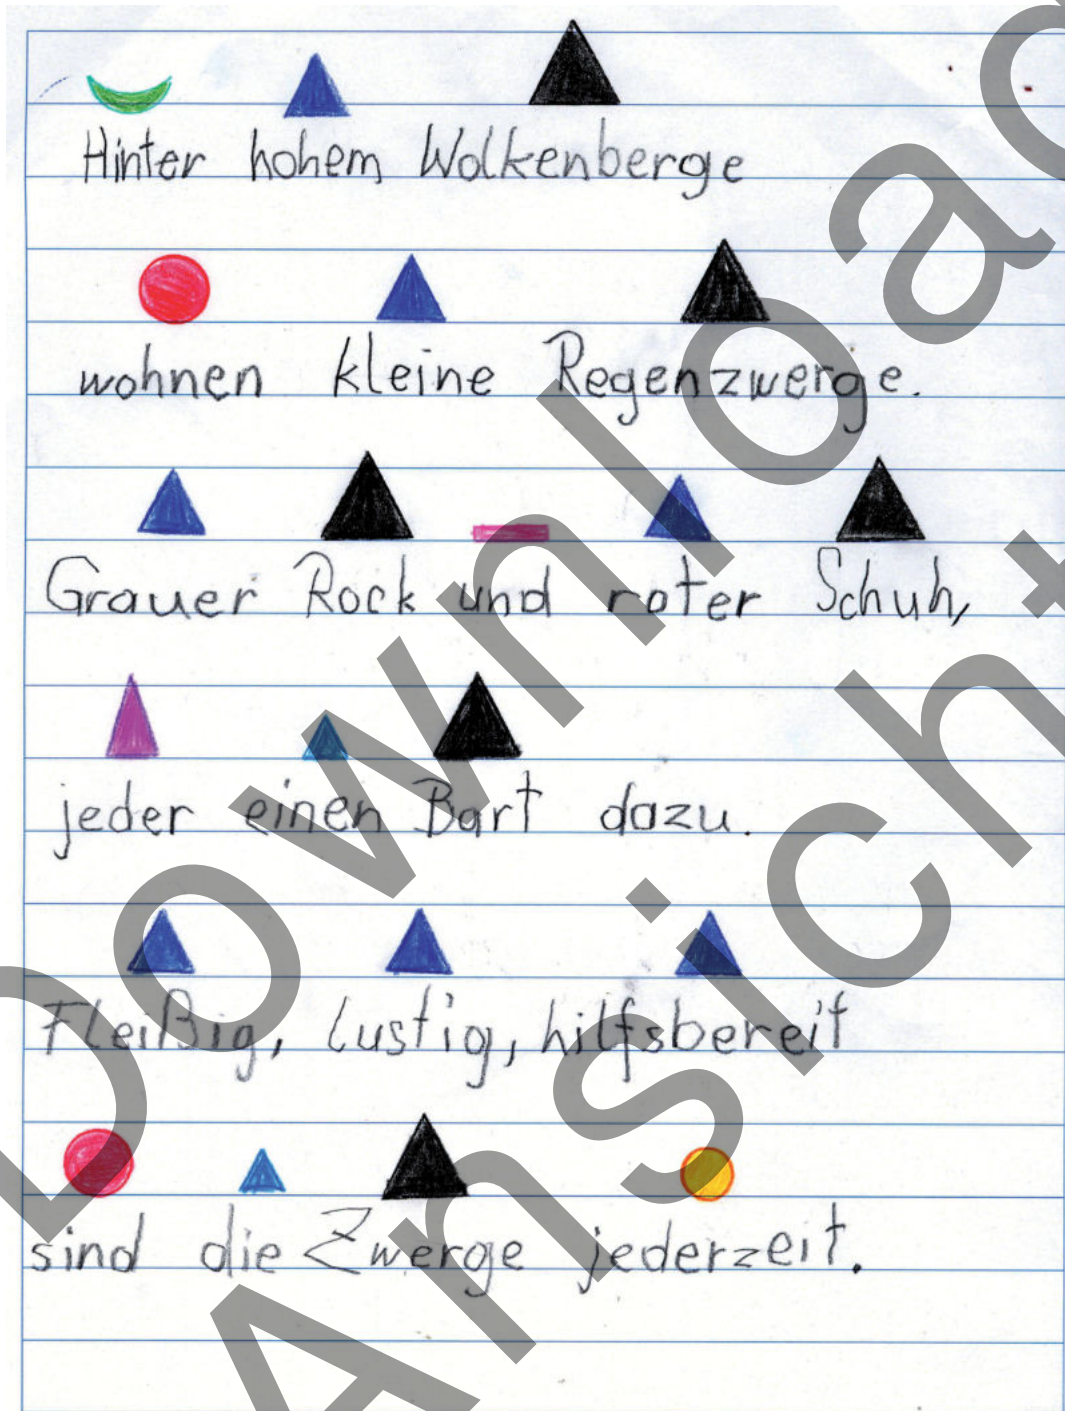 Hinter hohem Wolkenberge
wohnen kleine Regenzwerge.
Grauer Rock und roter Schuh,
jeder einen Bart dazu.
Fleißig, lustig, hilfsbereit
sind die Zwerge jederzeit.
Download
Ansicht